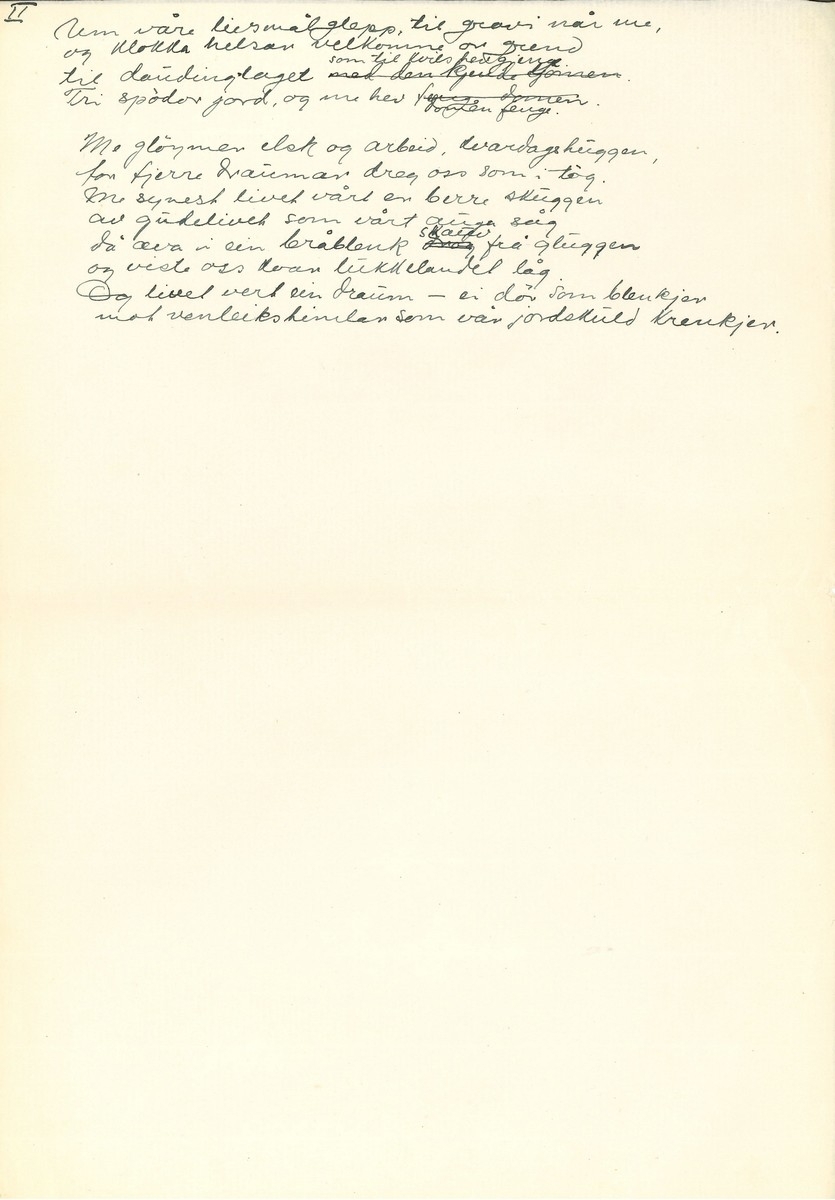 II
Um våre livsmål glepp, til gravi når me,
og klokka helsar velkomne or grend
som til kvils hev gjenge
til daudinglaget med den kjende tonen.
Tri spødor jord, og me hev fenge domen.
domen fenge.
Me gløymer elsk og arbeid, kvardagshuggen,
for fjerre draumar dreg oss som i tog.
Me synest livet vårt er berre skuggen
av gudelivet som vårt auga såg
skauv
då æva i ein bråblenk drog frå gluggen
og viste oss kvar lukkelandet låg.
Og livet vert ein draum – ei dør som blenkjer
mot venleikshimlar som vår jordskuld krenkjer.